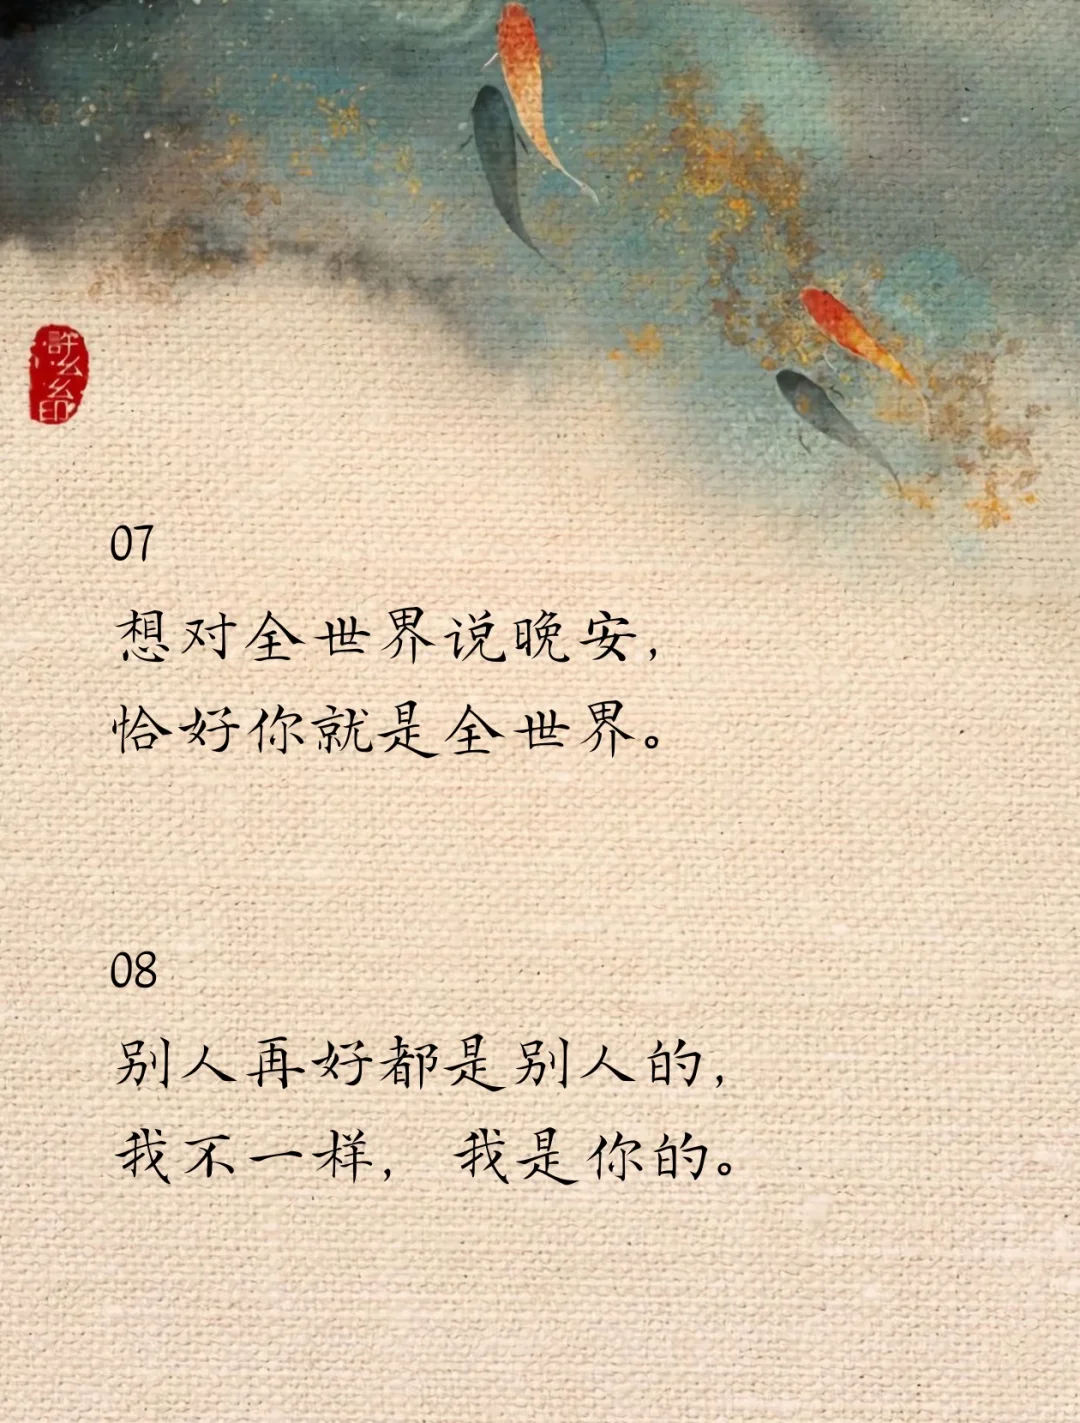 許
幺
幺
印
07
想对全世界说晚安，
恰好你就是全世界。
08
别人再好都是别人的，
我不一样，我是你的。